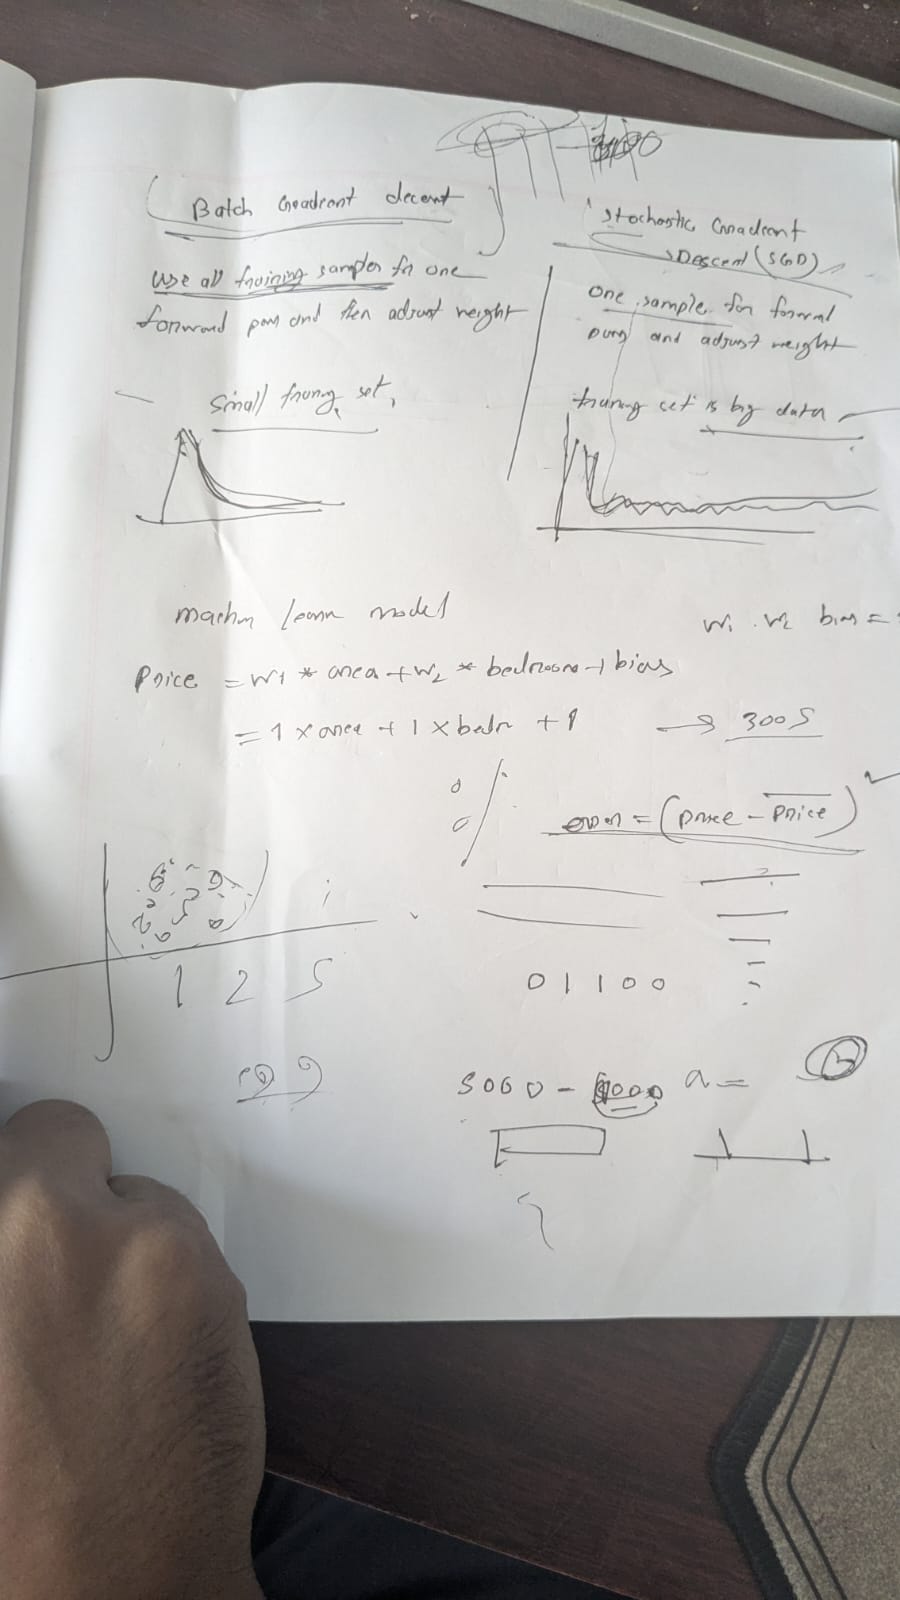 Batch Gradient decent
use all training samples for one
forward pass and then adjust weight
small training set,
Stochastic Gradient
Descent (SGD)
one sample for forward
pass and adjust weight
training set is big data
machin learn model
w1 . w2 bias =
Price = w1 * area + w2 * bedrooms + bias
= 1 x area + 1 x bedr + 1 → 3005
error = (price - price)²
1 2 5
0 1 1 0 0
5000 - a =